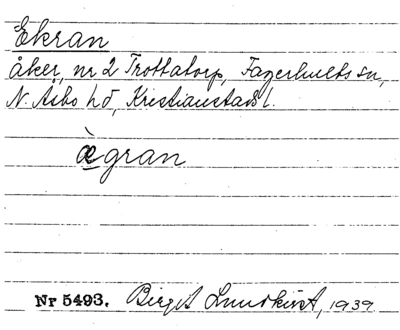 Ekran
åker, nr 2 Trottatorp, Fagerhults sn,
N. Åsbo hd, Kristianstads l.
ægran
Nr 5493. Birgit Lundkvist, 1939